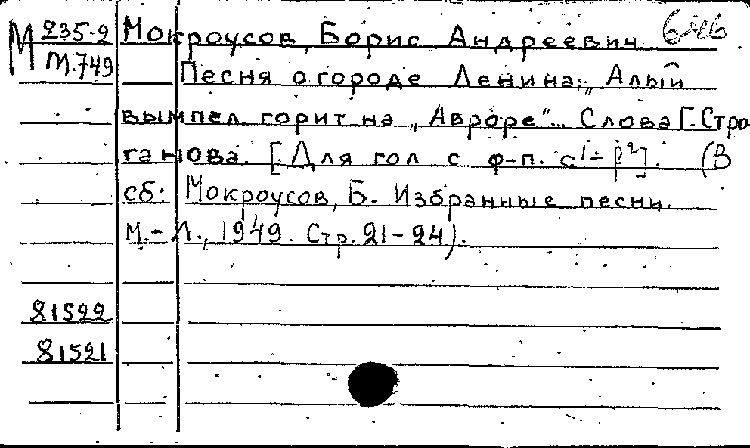 М 235-2 Мокроусов, Борис Андреевич 646
М.749 Песня о городе Ленина: „Алый
вымпел горит на „Авроре"... Слова Г. Стро
ганова. [Для гол с ф-п. с¹- ]. (В
сб: Мокроусов, Б. Избранные песни.
М.-Л., 1949. Стр. 21-24).
81522
81521